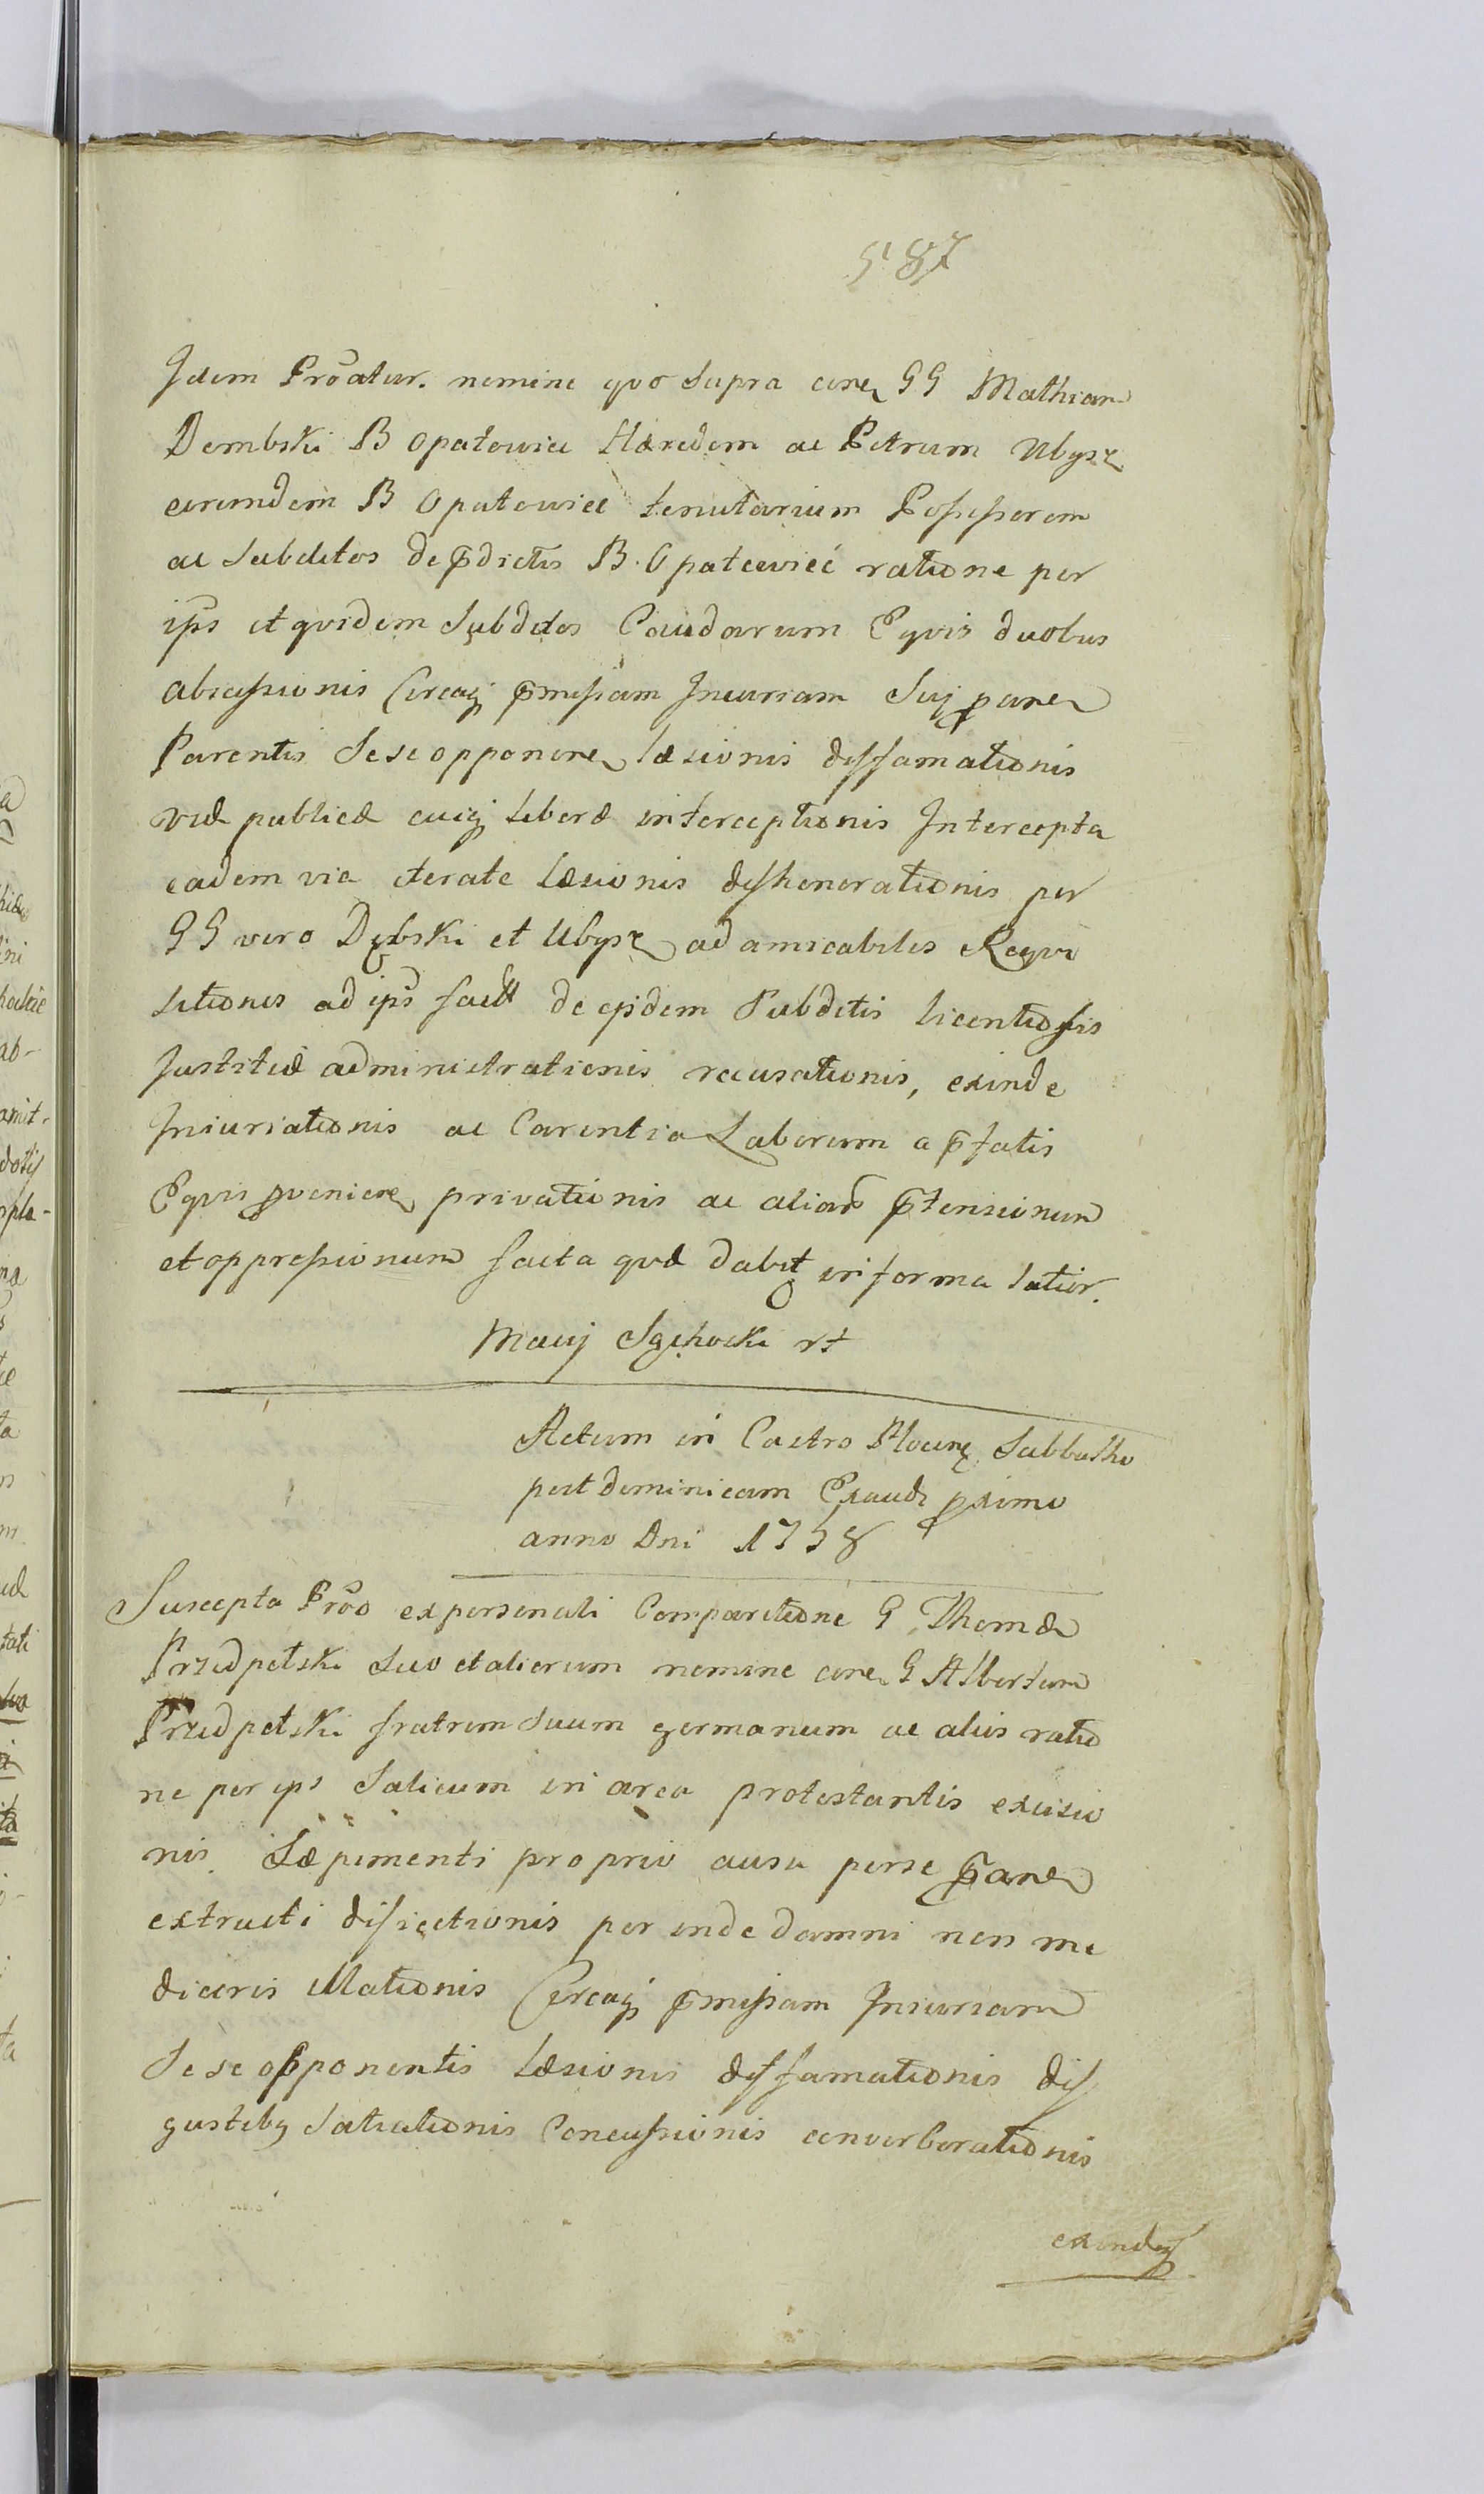 587
Idem Proatur. nomine quo supra cone GG Mathiam
Dembski B Opatowiec Hæredem ac Petrum Ubysz
eorumdem B Opatowiec tenutarium Possessorem
ac Subditos de pdictis B. Opatowiec ratione per
ips et quidem Subditos Caudarum Equis duobus
abscissionis Circaq pmissam Iniuriam Suj pane
Parentis Sese opponene læsionis diffamationis
viæ publicæ cuiq liberæ interceptionis Intercepta
eadem via iterate læsionis dishonorationis per
GG vero Dębski et Ubysz ad amicabiles Requi
sitiones ad ips factt de ejsdem Subditis licentiosis
Justitiæ administrationis recusationis, exinde
Iniuriationis ac Carentia Laborum a pfatis
Equis pveniene privationis ac aliar ptensionum
et oppressionum facta quæ dabit in forma latior.
Maciej Sgchocki rt
Actum in Castro Plocens Sabbatho
post dominicam Exaudi pximo
anno Dni 1758
Suscepta Proo ex personali Comparitione G Thomæ
Przedpełski suo et aliorum nomine cone G Albertum
Przedpełski fratrem suum germanum ac alios ratio
ne per ips Salicum in area protestantis excisio
nis Sæpimenti proprio ausu per se pane
extructi disiectionis per inde damni non me
diocris illationis Circaq pmissam Iniuriam
Sese opponentis læsionis diffamationis dis
gustibq Satiationis Concussionis converberationis
exindeq